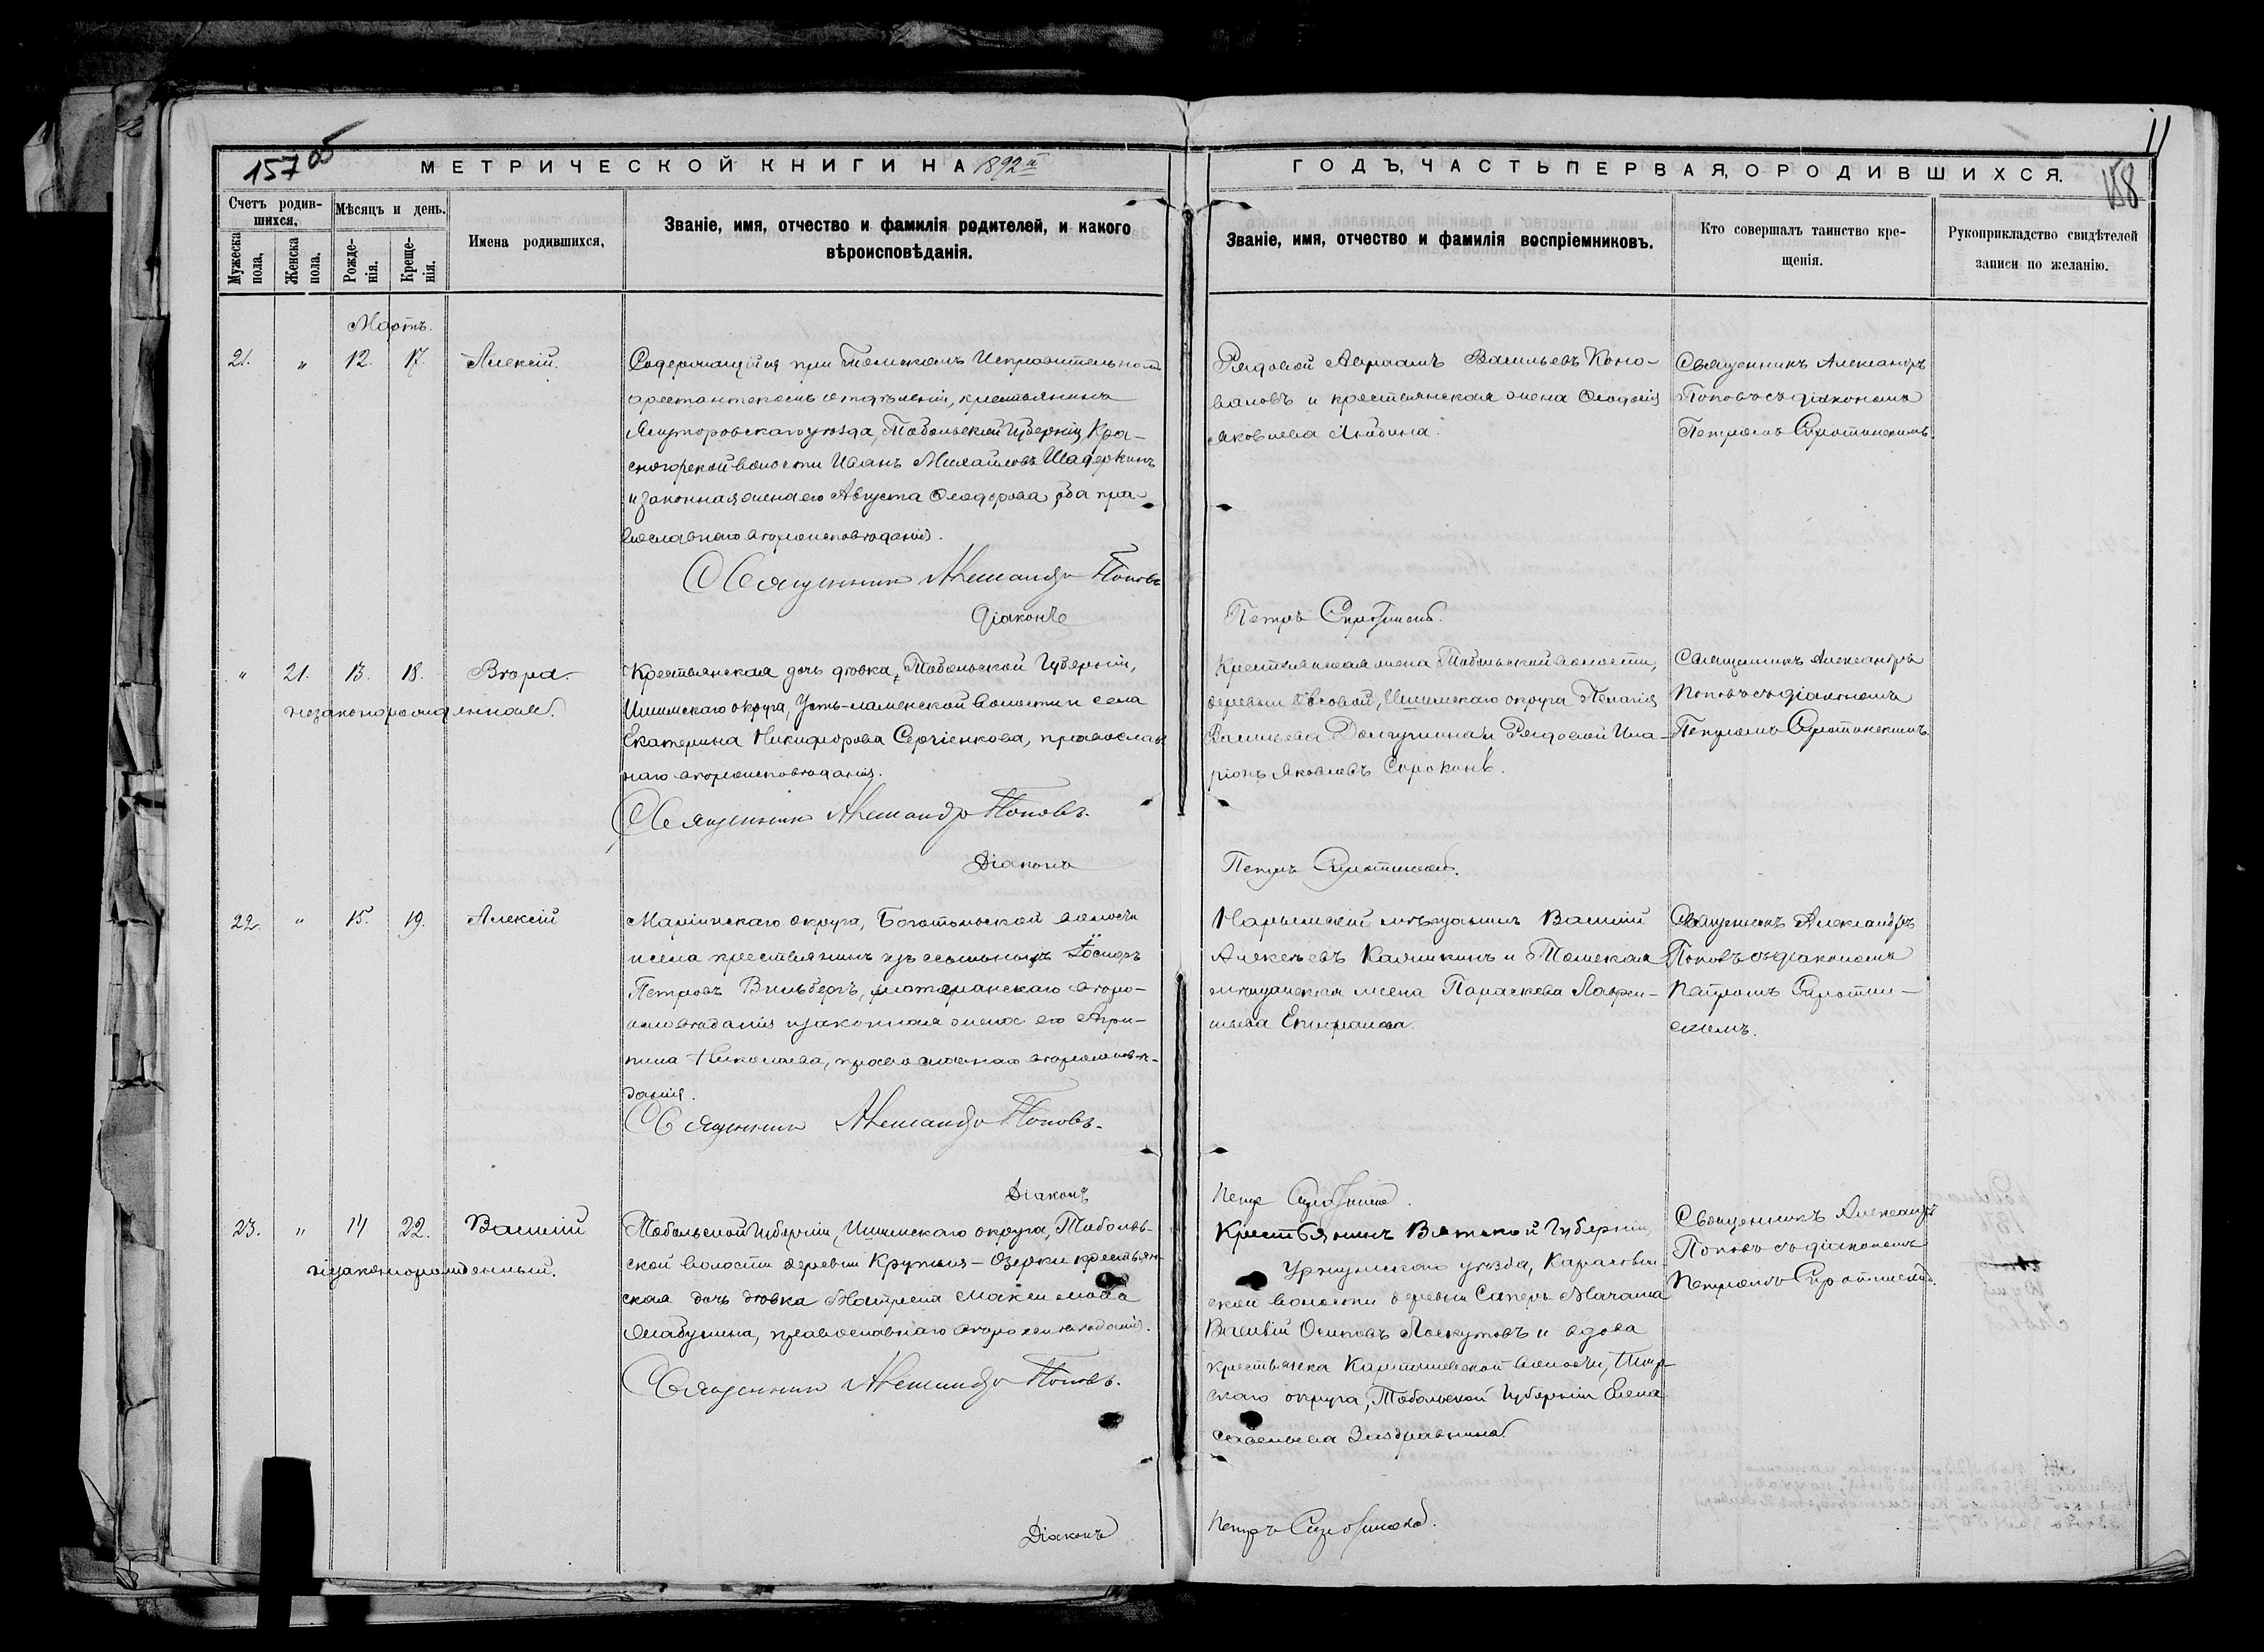 157 об
МЕТРИЧЕСКОЙ КНИГИ НА 1892й
ГОДЪ, ЧАСТЬ ПЕРВАЯ, О РОДИВШИХСЯ.
11
158
Счетъ родив-
шихся,
Мужеска
пола,
Женска
пола.
Мѣсяцъ и день.
Рожде-
нія.
Креще-
нія.
Имена родившихся,
Званіе, имя, отчество и фамилія родителей, и какого
вѣроисповѣданія.
Званіе, имя, отчество и фамилія воспріемниковъ.
Кто совершалъ таинство кре-
щенія.
Рукоприкладство свидѣтелей
записи по желанію.
Мартъ.
21. " 12. 17. Алексій.
Содержащійся при Томскомъ Исправительномъ
арестантскомъ отдѣленіи, крестьянинъ
Ялуторовскаго уѣзда, Тобольской Губерніи, Кра-
сногорской волости Иванъ Михайловъ Шадеркинъ
и законная жена его Августа Ѳеодорова, оба пра-
вославнаго вѣроисповѣданія.
Священникъ Александръ Поповъ
Діаконъ
Рядовой Авраамъ Васильевъ Коно-
валовъ и крестьянская жена Ѳеодосія
Яковлева
Священникъ Александръ
Поповъ съ діакономъ
Петромъ Сиротинскимъ
Петръ Сиротинскій.
" 21. 13. 18. Вѣра.
незаконорожденная.
Крестьянская дочь дѣвка, Тобольской Губерніи,
Ишимскаго округа, Усть-ламенской волости и села
Екатерина Никифорова Сергіенкова, православ
наго вѣроисповѣданія.
Священникъ Александръ Поповъ.
Діаконъ
Крестьянская жена Тобольской волости,
деревни Ишимскаго округа Пелагія
Васильева и Рядовой Ила-
ріонъ Яковлевъ Сорокинъ.
Священникъ Александръ
Поповъ съ діакономъ
Петромъ Сиротинскимъ
Петръ Сиротинскій.
22. " 15. 19. Алексій
Маріинскаго округа, Боготольской волости
и села крестьянинъ изъ ссыльныхъ Іосифъ
Петровъ Вильбергъ, лютеранскаго вѣро-
исповѣданія и законная жена его Агри-
пина Николаева, православнаго вѣроисповѣ-
данія.
Священникъ Александръ Поповъ.
Діаконъ
Нарымскій мѣщанинъ Василій
Алексѣевъ Калинкинъ и Томская
мѣщанская жена Параскева Лаврен-
тьева Епифанова.
Священникъ Александръ
Поповъ съ діакономъ
Петромъ Сиротин-
скимъ.
Петръ Сиротинскій.
23. " 14 22. Василій
незаконорожденный.
Тобольской Губерніи, Ишимскаго округа, Тоболов-
ской волости деревни Крутыя-Озерки крестьян-
ская дочь дѣвка Матрена Максимова
православнаго вѣроисповѣданія.
Священникъ Александръ Поповъ.
Діаконъ
Крестьянинъ Вятской Губерніи,
Уржумскаго уѣзда,
ской волости деревни
Василій Осиповъ Лоскутовъ и вдова
крестьянка Карташевской волости, Тар-
скаго округа, Тобольской Губерніи Елена
Савельева
Священникъ Александръ
Поповъ съ діакономъ
Петромъ Сиротинскимъ.
Петръ Сиротинскій.